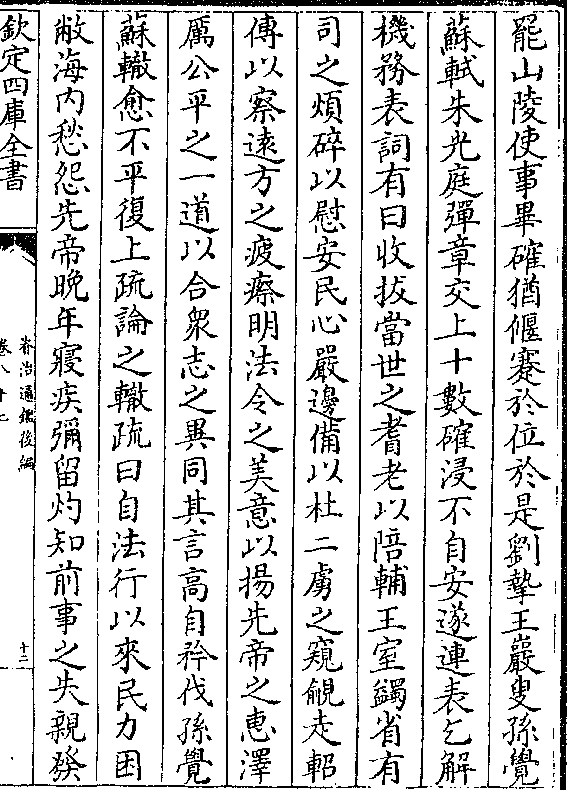 罷山陵使事畢確猶偃蹇於位於是劉摯王巖叟孫覺
蘇軾朱光庭彈章交上十數確浸不自安遂連表乞解
機務表詞有曰收拔當世之耆老以陪輔王室蠲省有
司之煩碎以慰安民心嚴邊備以杜二虜之窺覦走軺
傳以察遠方之疲瘵明法令之美意以揚先帝之惠澤
厲公平之一道以合衆志之異同其言高自矜伐孫覺
蘇轍愈不平復上疏論之轍疏曰自法行以來民力困
敝海内愁怨先帝晚年寢疾彌留灼知前事之失親發
欽定四庫全書
資治通鑑後編
卷八十七
十二